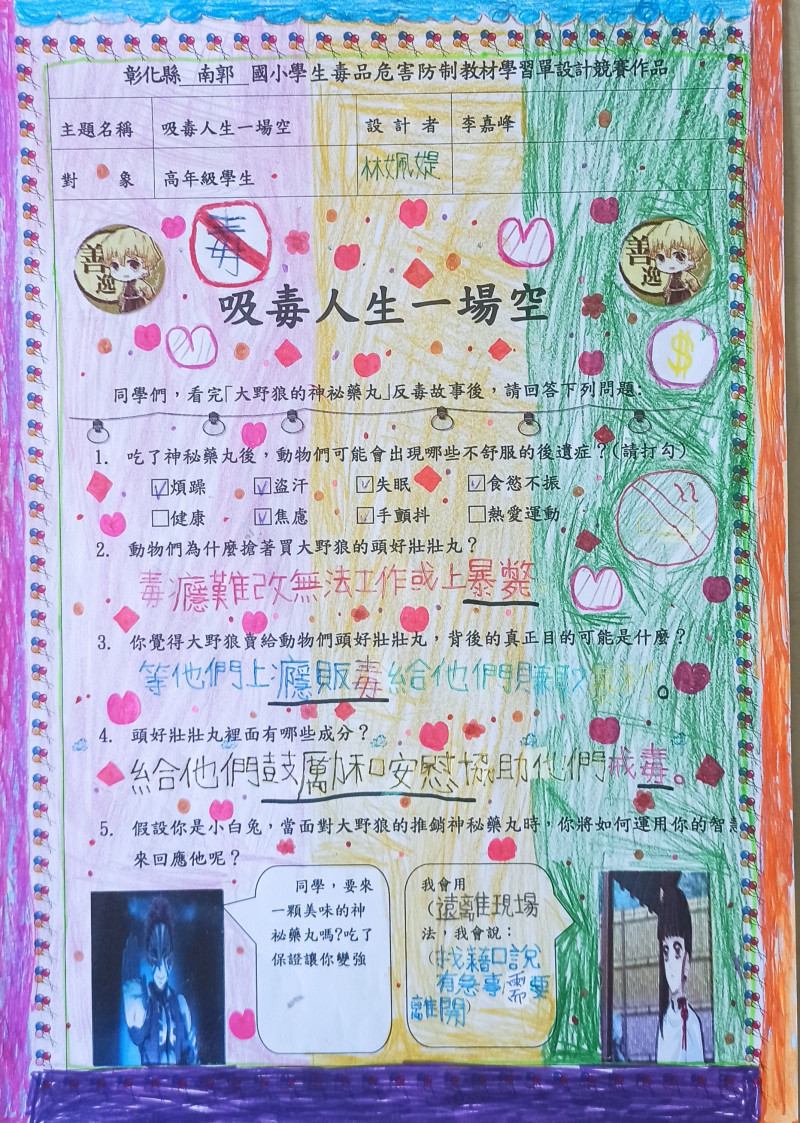 彰化縣 南郭 國小學生毒品危害防制教材學習單設計競賽作品
主題名稱 吸毒人生一場空 設計者 李嘉峰
對象 高年級學生 林姵媞
毒
善逸
善逸
吸毒人生一場空
$
同學們，看完「大野狼的神祕藥丸」反毒故事後，請回答下列問題:
1. 吃了神秘藥丸後，動物們可能會出現哪些不舒服的後遺症？(請打勾)
☑煩躁 ☑盜汗 ☑失眠 ☑食慾不振
☐健康 ☑焦慮 ☑手顫抖 ☐熱愛運動
2. 動物們為什麼搶著買大野狼的頭好壯壯丸？
毒癮難改無法工作或上暴斃
3. 你覺得大野狼賣給動物們頭好壯壯丸，背後的真正目的可能是什麼？
等他們上癮販毒給他們賺取
4. 頭好壯壯丸裡面有哪些成分？
給他們鼓勵和安慰協助他們戒毒。
5. 假設你是小白兔，當面對大野狼的推銷神秘藥丸時，你將如何運用你的智慧
來回應他呢？
同學，要來
一顆美味的神
祕藥丸嗎?吃了
保證讓你變強
我會用
(遠離現場
法，我會說：
(找藉口說
有急事需要
離開)